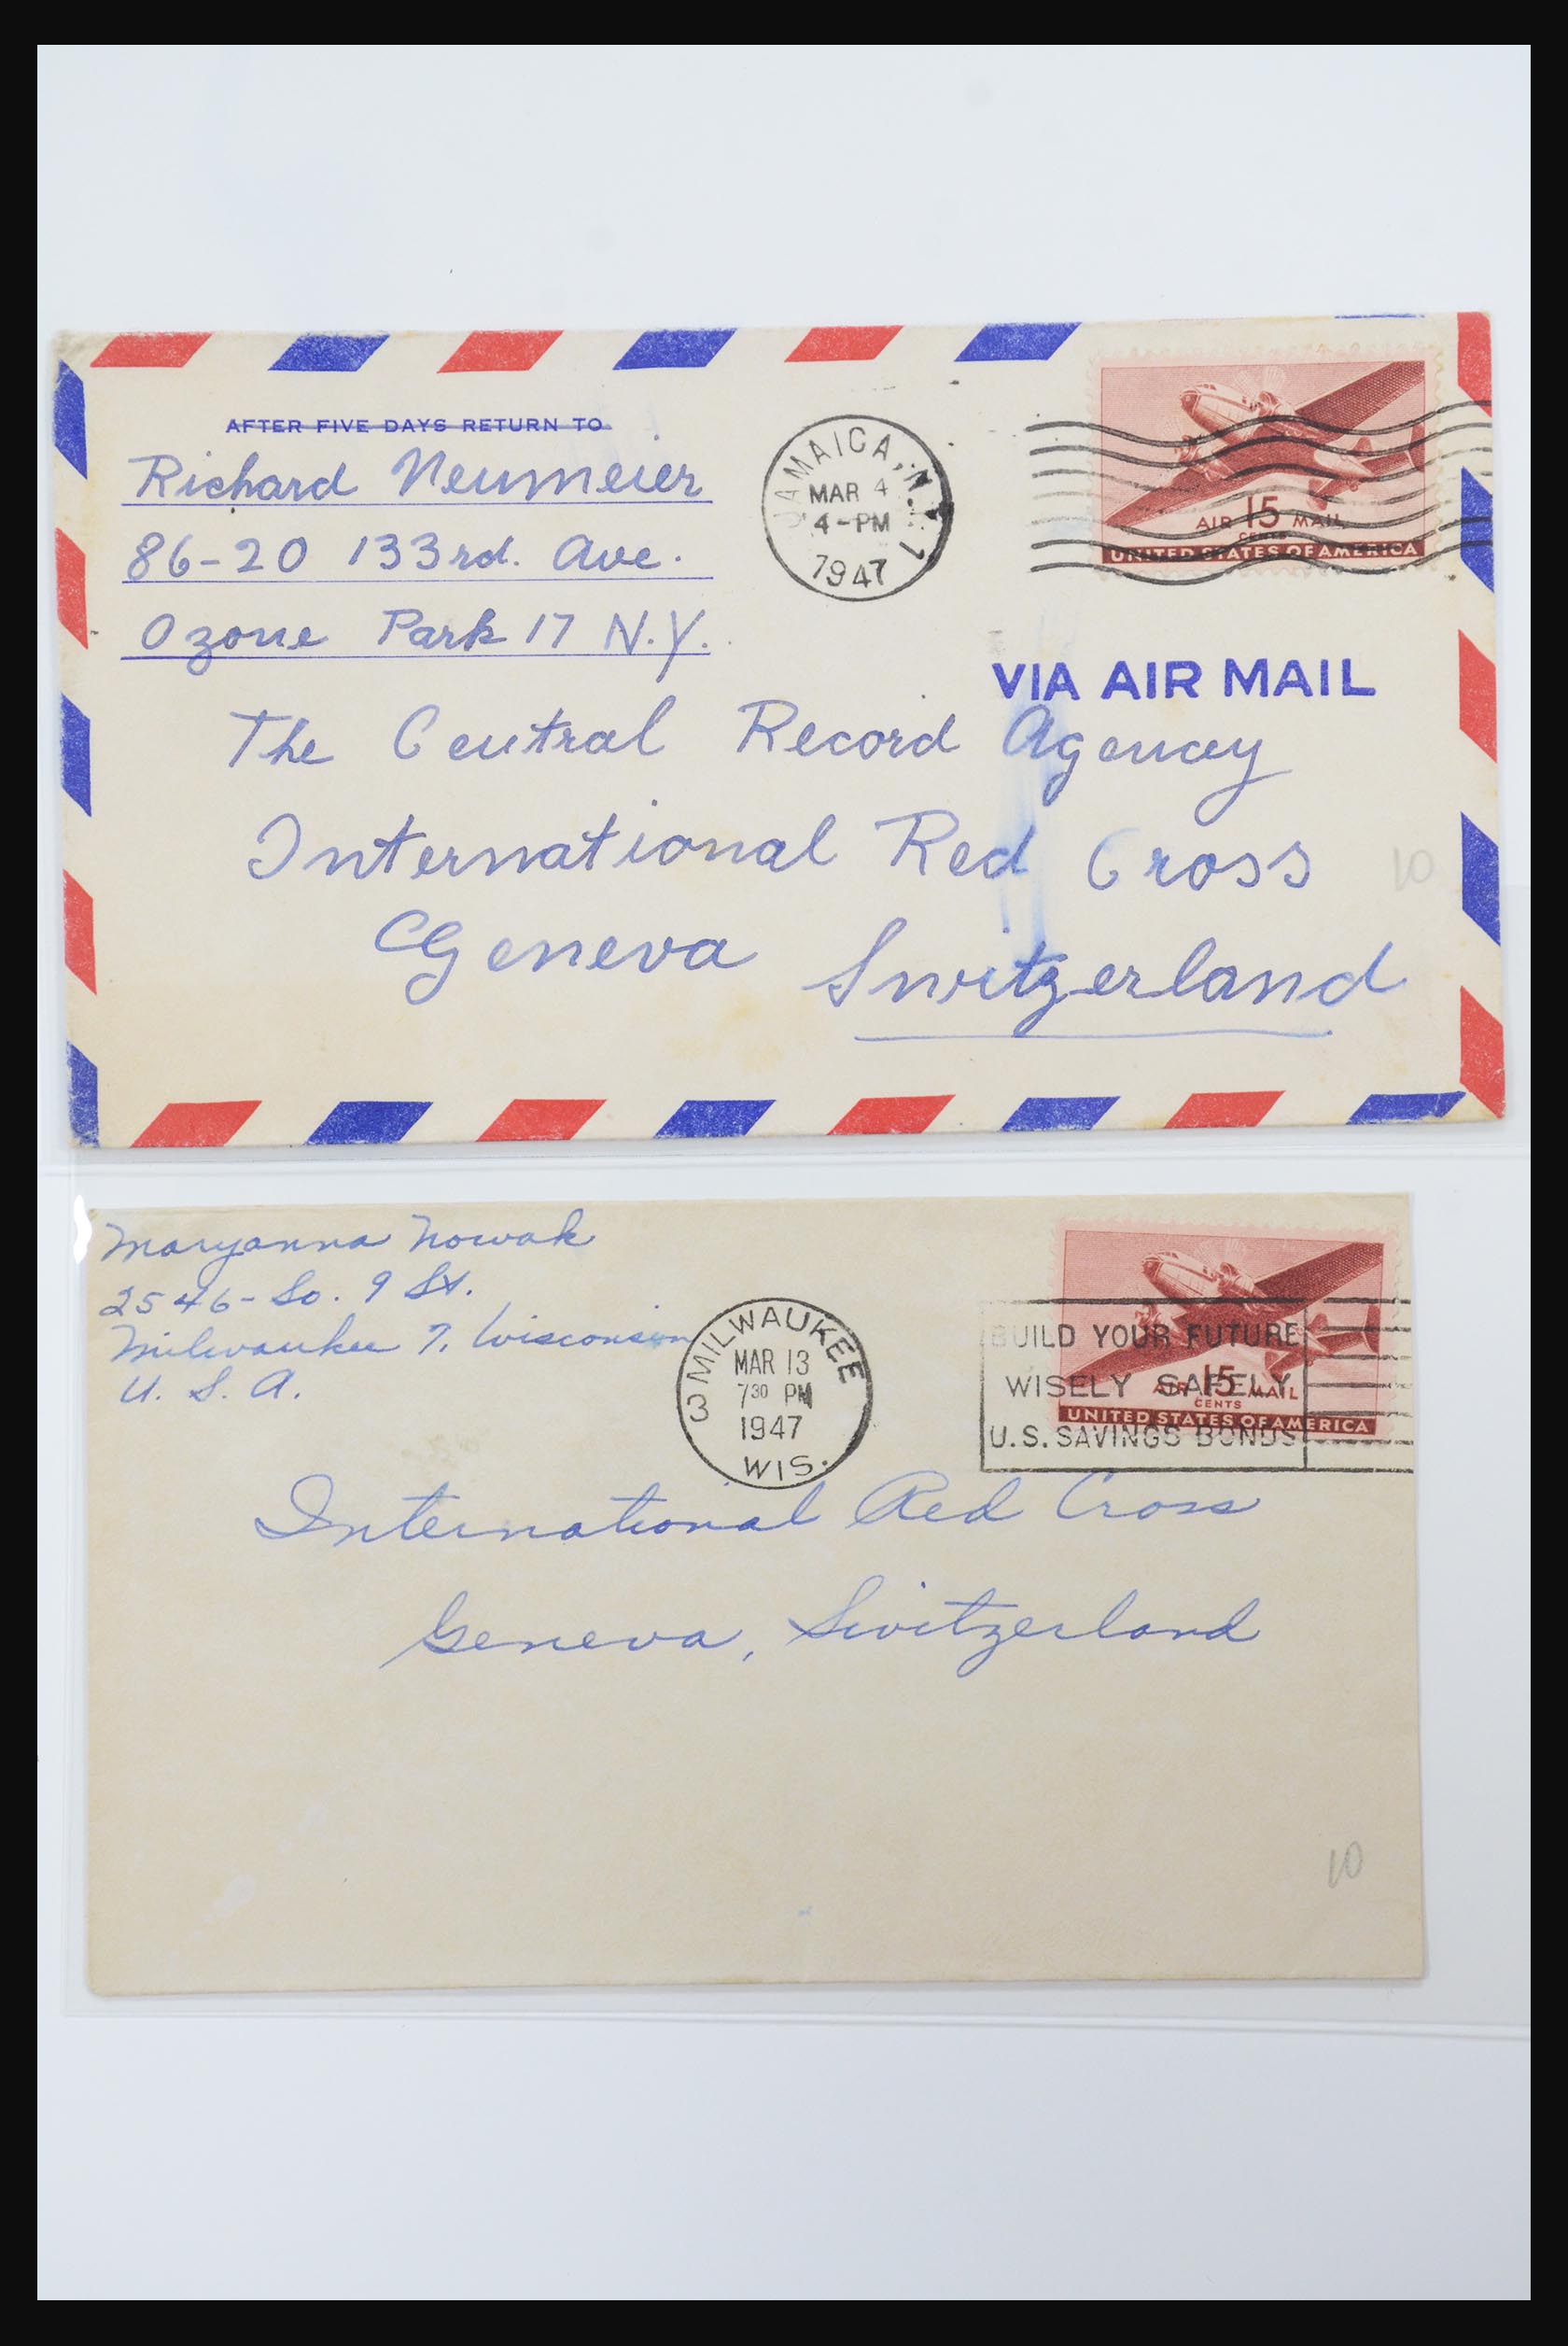 AFTER FIVE DAYS RETURN TO
Richard Neumeier
86-20 133rd. Ave.
Ozone Park 17 N.Y.
JAMAICA, N.Y.
MAR 4
4-PM
1947
1
AIR 15 MAIL
CENTS
UNITED STATES OF AMERICA
VIA AIR MAIL
The Central Record Agency
International Red Cross
Geneva Switzerland
10
Maryanna Nowak
2546-So. 9 St.
Milwaukee 7, Wisconsin
U. S. A.
MILWAUKEE 3
MAR 13
7 30 PM
1947
WIS.
BUILD YOUR FUTURE
WISELY SAFELY
U.S. SAVINGS BONDS
AIR 15 MAIL
CENTS
UNITED STATES OF AMERICA
International Red Cross
Geneva, Switzerland
10